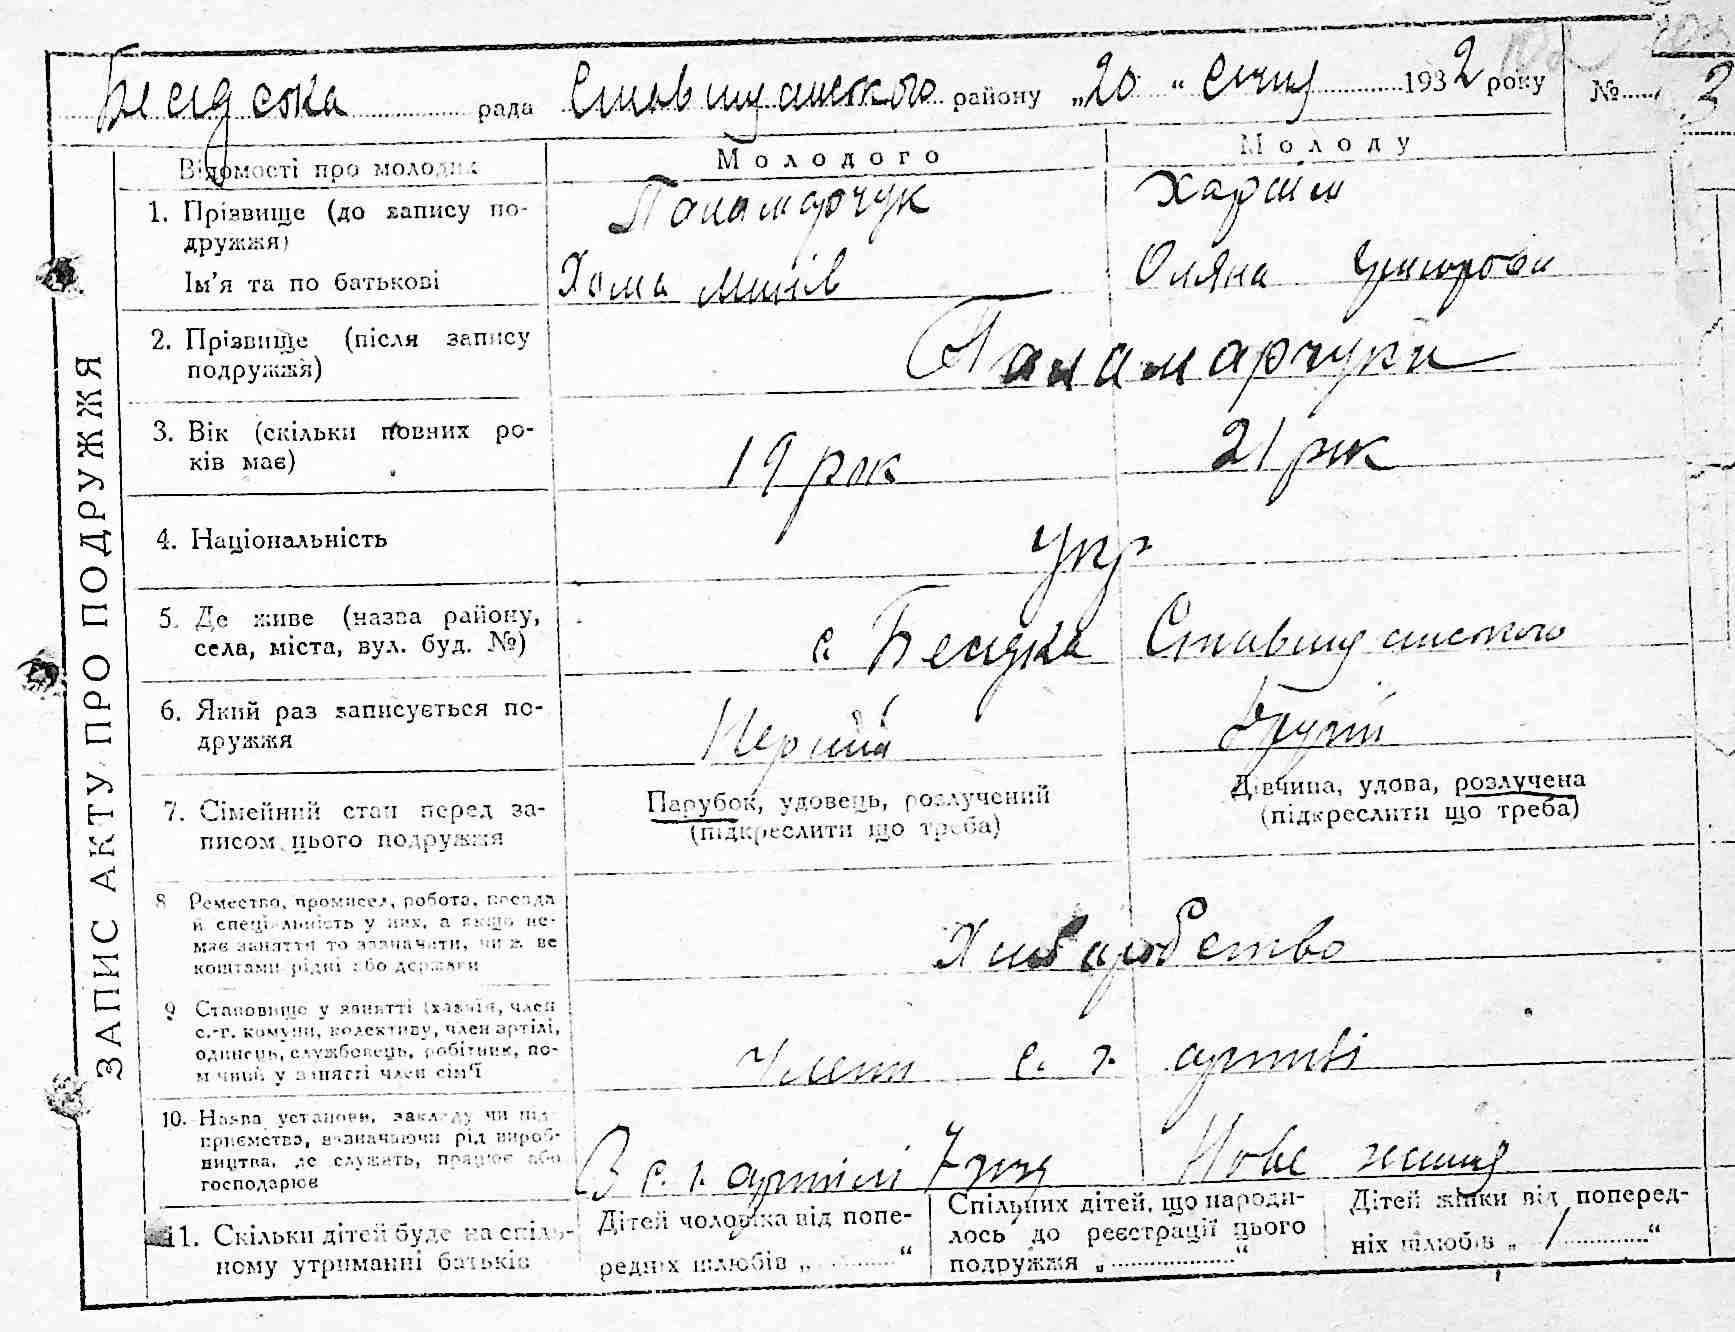 Бесідська рада Ставищанського району „20“ січня 1932 року № 3
ЗАПИС АКТУ ПРО ПОДРУЖЖЯ
Відомості про молодих
Молодого
Молоду
1. Прізвище (до запису по-
дружжя)
Панамарчук
Ім'я та по батькові
Хома
Оляна
2. Прізвище (після запису
подружжя)
Панамарчуки
3. Вік (скільки повних ро-
ків має)
19 рок
21 рік
4. Національність
Укр
5. Де живе (назва району,
села, міста, вул. буд. №)
с. Бесидка Ставищанського
6. Який раз записується по-
дружжя
Перший
Другий
7. Сімейний стан перед за-
писом цього подружжя
Парубок, удовець, розлучений
(підкреслити що треба)
Дівчина, удова, розлучена
(підкреслити що треба)
8 Ремество, промисел, робота, посада
й спеціальність у них, а якщо не-
має заняття то зазначити, чи ж ве
коштами рідні або держави
Хлібаробство
9 Становище у занятті (хазяїн, член
с.-г. комуни, колективу, член артілі,
одинець, службовець, робітник, по-
мічний у занятті член сім'ї
Члени с. г. артілі
10. Назва установи, закладу чи під-
приємства, зазначаючи рід вироб-
ництва, де служить, працює або
господарює
В с. г. артілі Нове життя
11. Скільки дітей буде на спіль-
ному утриманні батьків
Дітей чоловіка від попе-
редніх шлюбів „ “
Спільних дітей, що народи-
лось до реєстрації цього
подружжя „ “
Дітей жінки від поперед-
ніх шлюбів „ 1 “